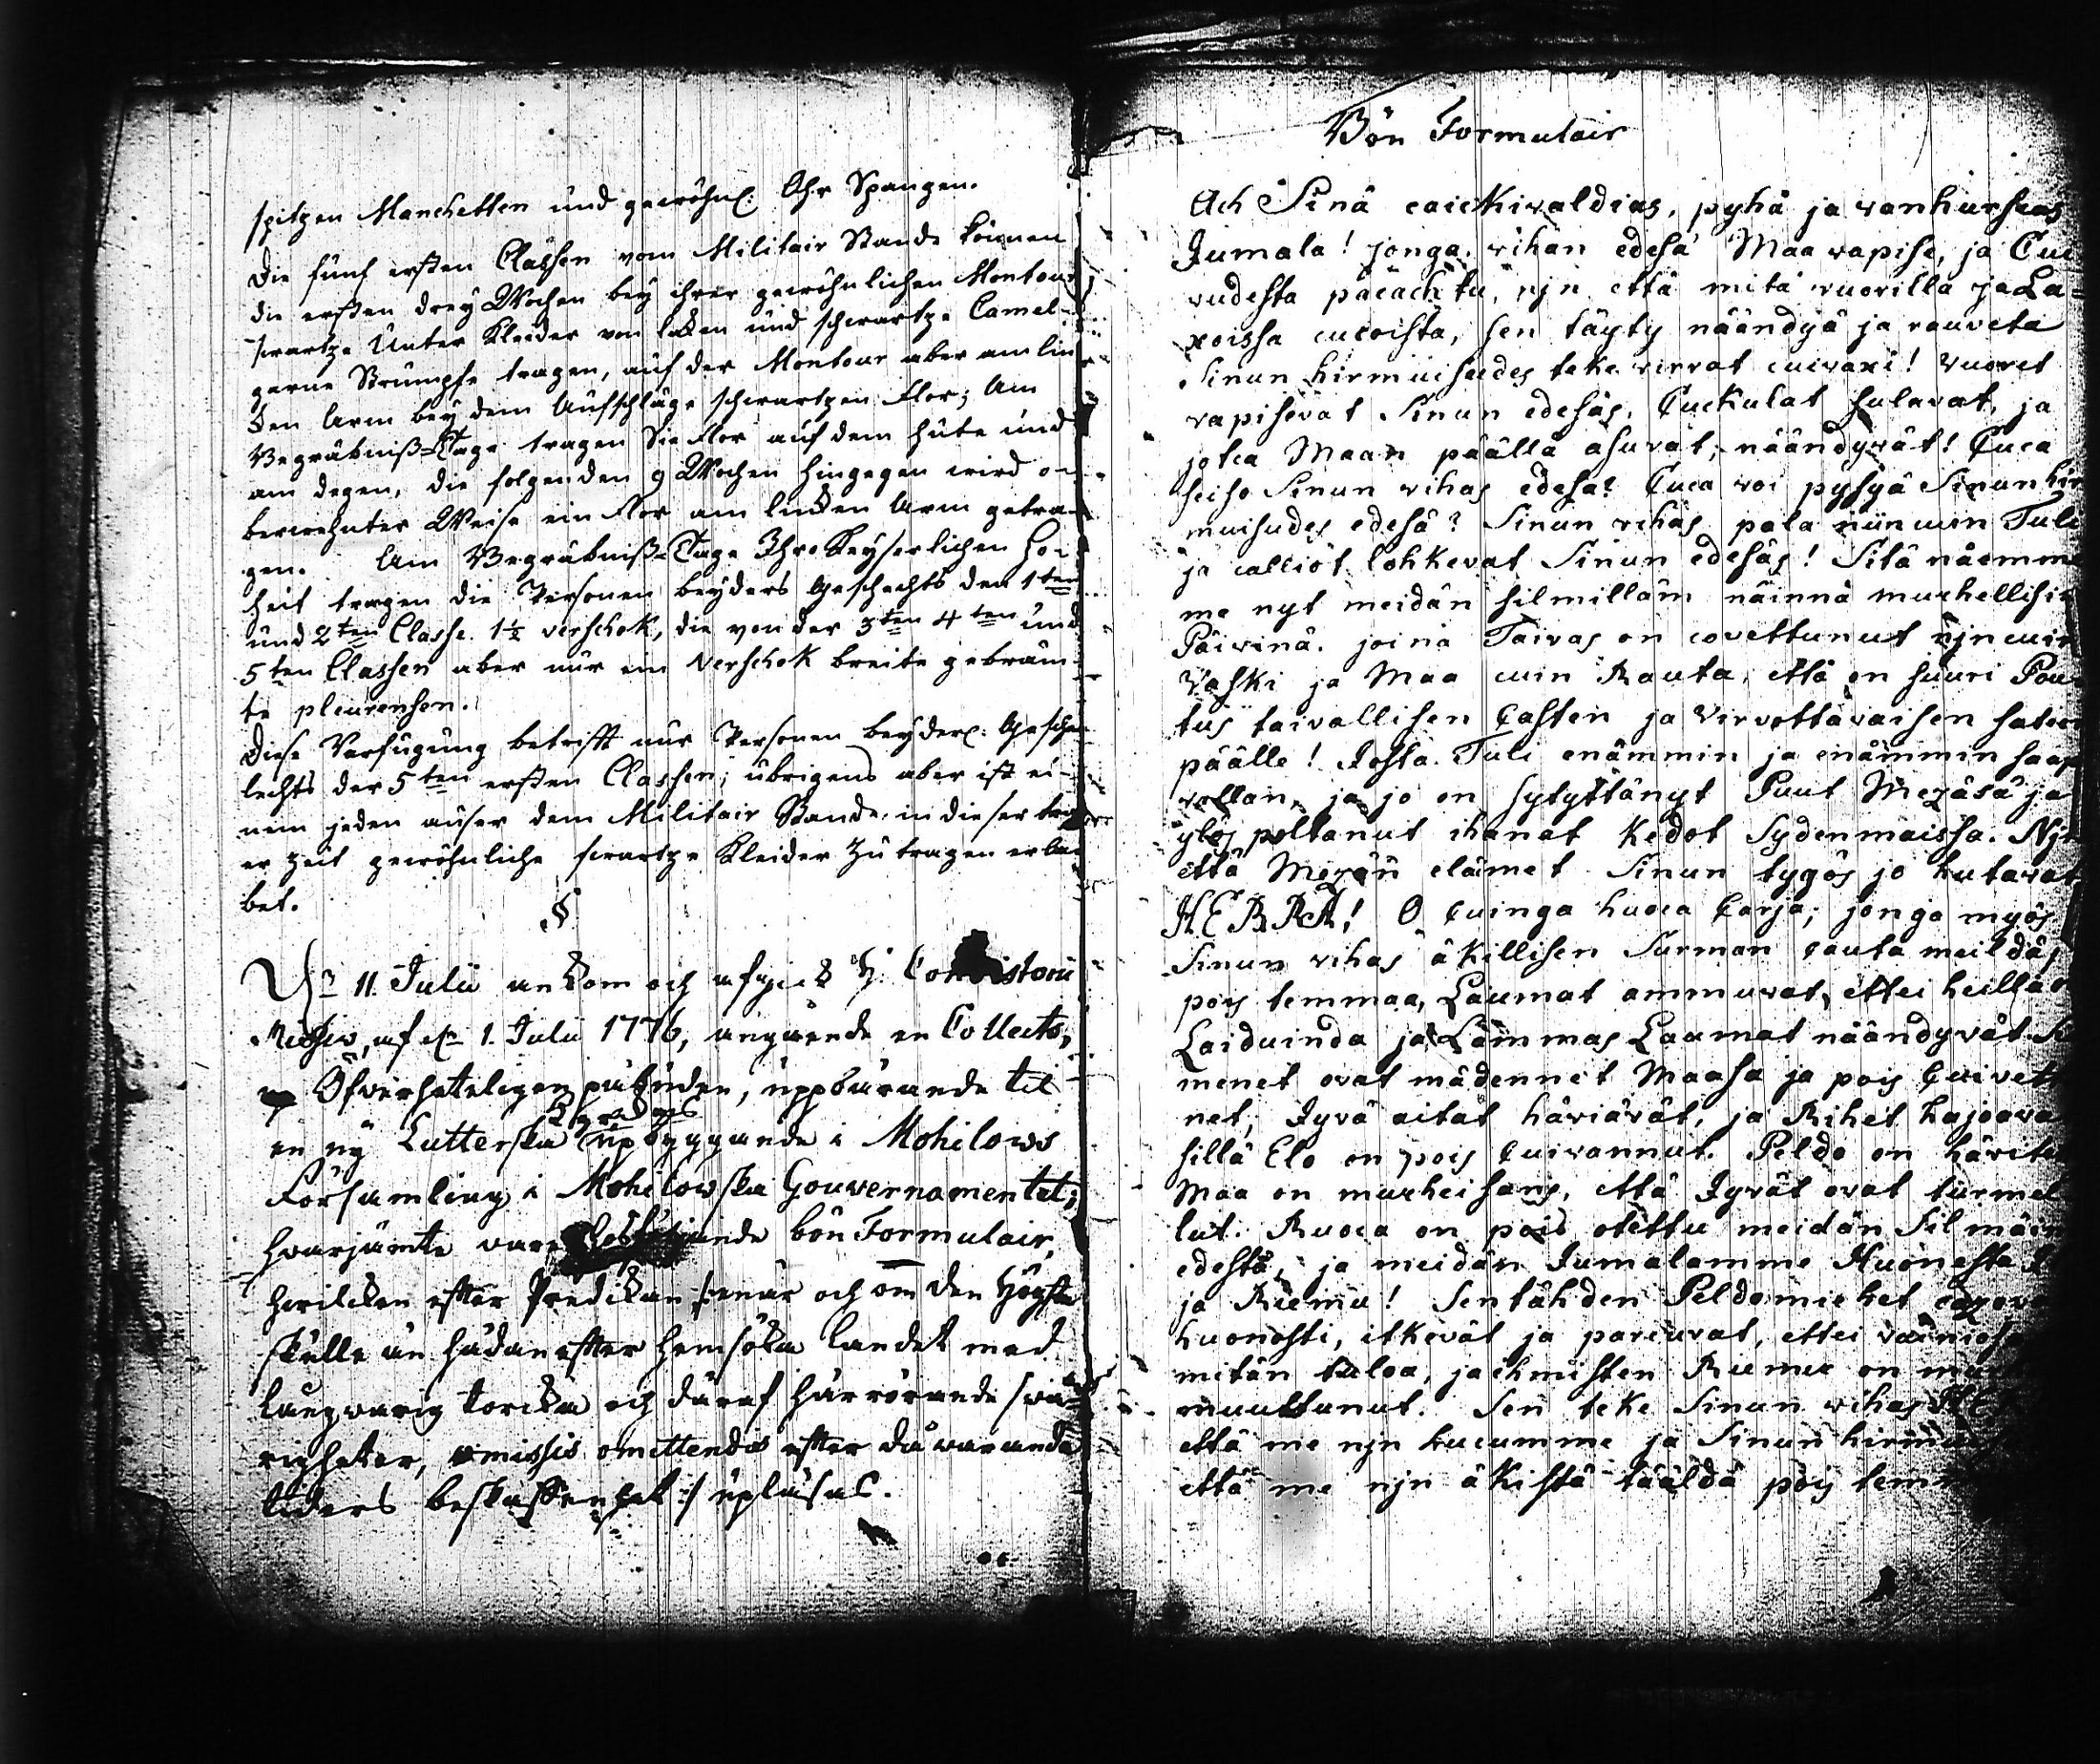 spitzen Manchetten und gewöhnl: Ohr Spangen.
Die fünf ersten Classen vom Militair Stande können
die ersten drey Wochen bey ihrer gewöhnlichen Montour
swartze Unter Kleider von laken und schwartze Camel-
garne Strümpfe tragen, auf der Montour aber am lin
ken Arm bey dem Aufschlage schwartzen Flor; Am
Begräbniß-Tage tragen Sie Flor auf dem Hute und
am degen, die folgenden 9 Wochen hingegen wird o-
berwehnter Weise ein Flor am linken Arm getra-
gen. Am Begräbniß-Tage Ihro Keyserlichen Ho-
heit tragen die Personen beyders Geschechts der 1ten
und 2ten Classe 1½ verschok, die von der 3ten 4ten und
5ten Classen aber nur ein Verschok breite gebräm-
te pleurensen.
Diese Verfügung betrifft nur Personen beyder: Gesche-
lechts der 5ten ersten Classen; übrigens aber ist ei-
nem jeden auser dem Militair Stande in dieser trau
er Zeit gewöhnliche swartze Kleider zu tragen erlau
bet.
§
11. Julii ankom och afgick Consistorii
af 1. Julii 1776, angående en Collects,
Öfverheteligen påbuden, uppbärande til
Kyrckas
en ny Lutterska upbyggande i Mohilows
Församling i Mohilowska Gouvernamentet;
hvarjämte bön Formulair,
hvilcken efter Predikan när och om den Högste
skulle än hädanefter hemsöka landet med
långvarig torcka och däraf härrörande svå-
righeter, omissis omittendis efter då varande
tiders beskaffenhet :/ upläsas.
Bön Formulair
Ach Sinä caickivaldias, pyhä ja vanhurscas
Jumala! jonga vihan edesä Maa vapise, ja Cui
vudesta päeächtu, njn että mitä vuorilla ja La=
xoissa cucoista, sen täyty näändyä ja rauveta
Sinun hirmuisudes teke virrat cuivaxi! Vuoret
vapisevat Sinun edesäs, Cuckulat sulavat, ja
jotca Maan päällä asuvat, näändyvät! Cuca
seiso Sinun vihas edesä? Cuca voi pysyä Sinun hir
muisudes edesä? Sinun vihas pala niin cuin Tuli
ja calliot lohkevat Sinun edesäs! Sitä näemm
me nyt meidän silmilläm näinnä murhellisi
Päivinä, joina Taivas on covettunut njn cuin
Vaski ja Maa cuin Rauta, että on suuri Pou
tus taivallisen Casten ja Virvottavaisen saten
päälle! Josta Tuli enämmin ja enämmin saap
vallan, ja jo on sytyttänyt Puut Mezäsä ja
ylös poltanut ihanat Kedot Sydenmaissa. Njn
että Mezän elämet Sinun tygös jo hutavat
HERRA! O Cuinga huoca Carja, jonga myös
Sinun vihas äkillisen Surman cauta meildäs
pois temmaa, Laumat ammuvat, ettei heillä
Laiduinda ja Lammas Laumat näändyvät Si
menet ovat mädennet Maasa ja pois Cuivet
net, Jyvä aitat häviävät, ja Rihet hajoova
sillä Elo on pois Cuivannut. Peldo on hävite
Maa on murheisans, että Jyvät ovat turmel
lut. Ruoca on pois otettu meidän Silmäin
edestä, ja meidän Jumalamme Huonesta I
ja Riemu! Sentähden Peldomiehet
huonosti, itkevät ja parcuvat, ettei Vainios
mitän tuloa, ja ihmisten Riemu on mu
muuttunut. Sen teke Sinun vihas HE
että me njn hucumme ja Sinun hirmui
että me njn äkistä täældä pois tem